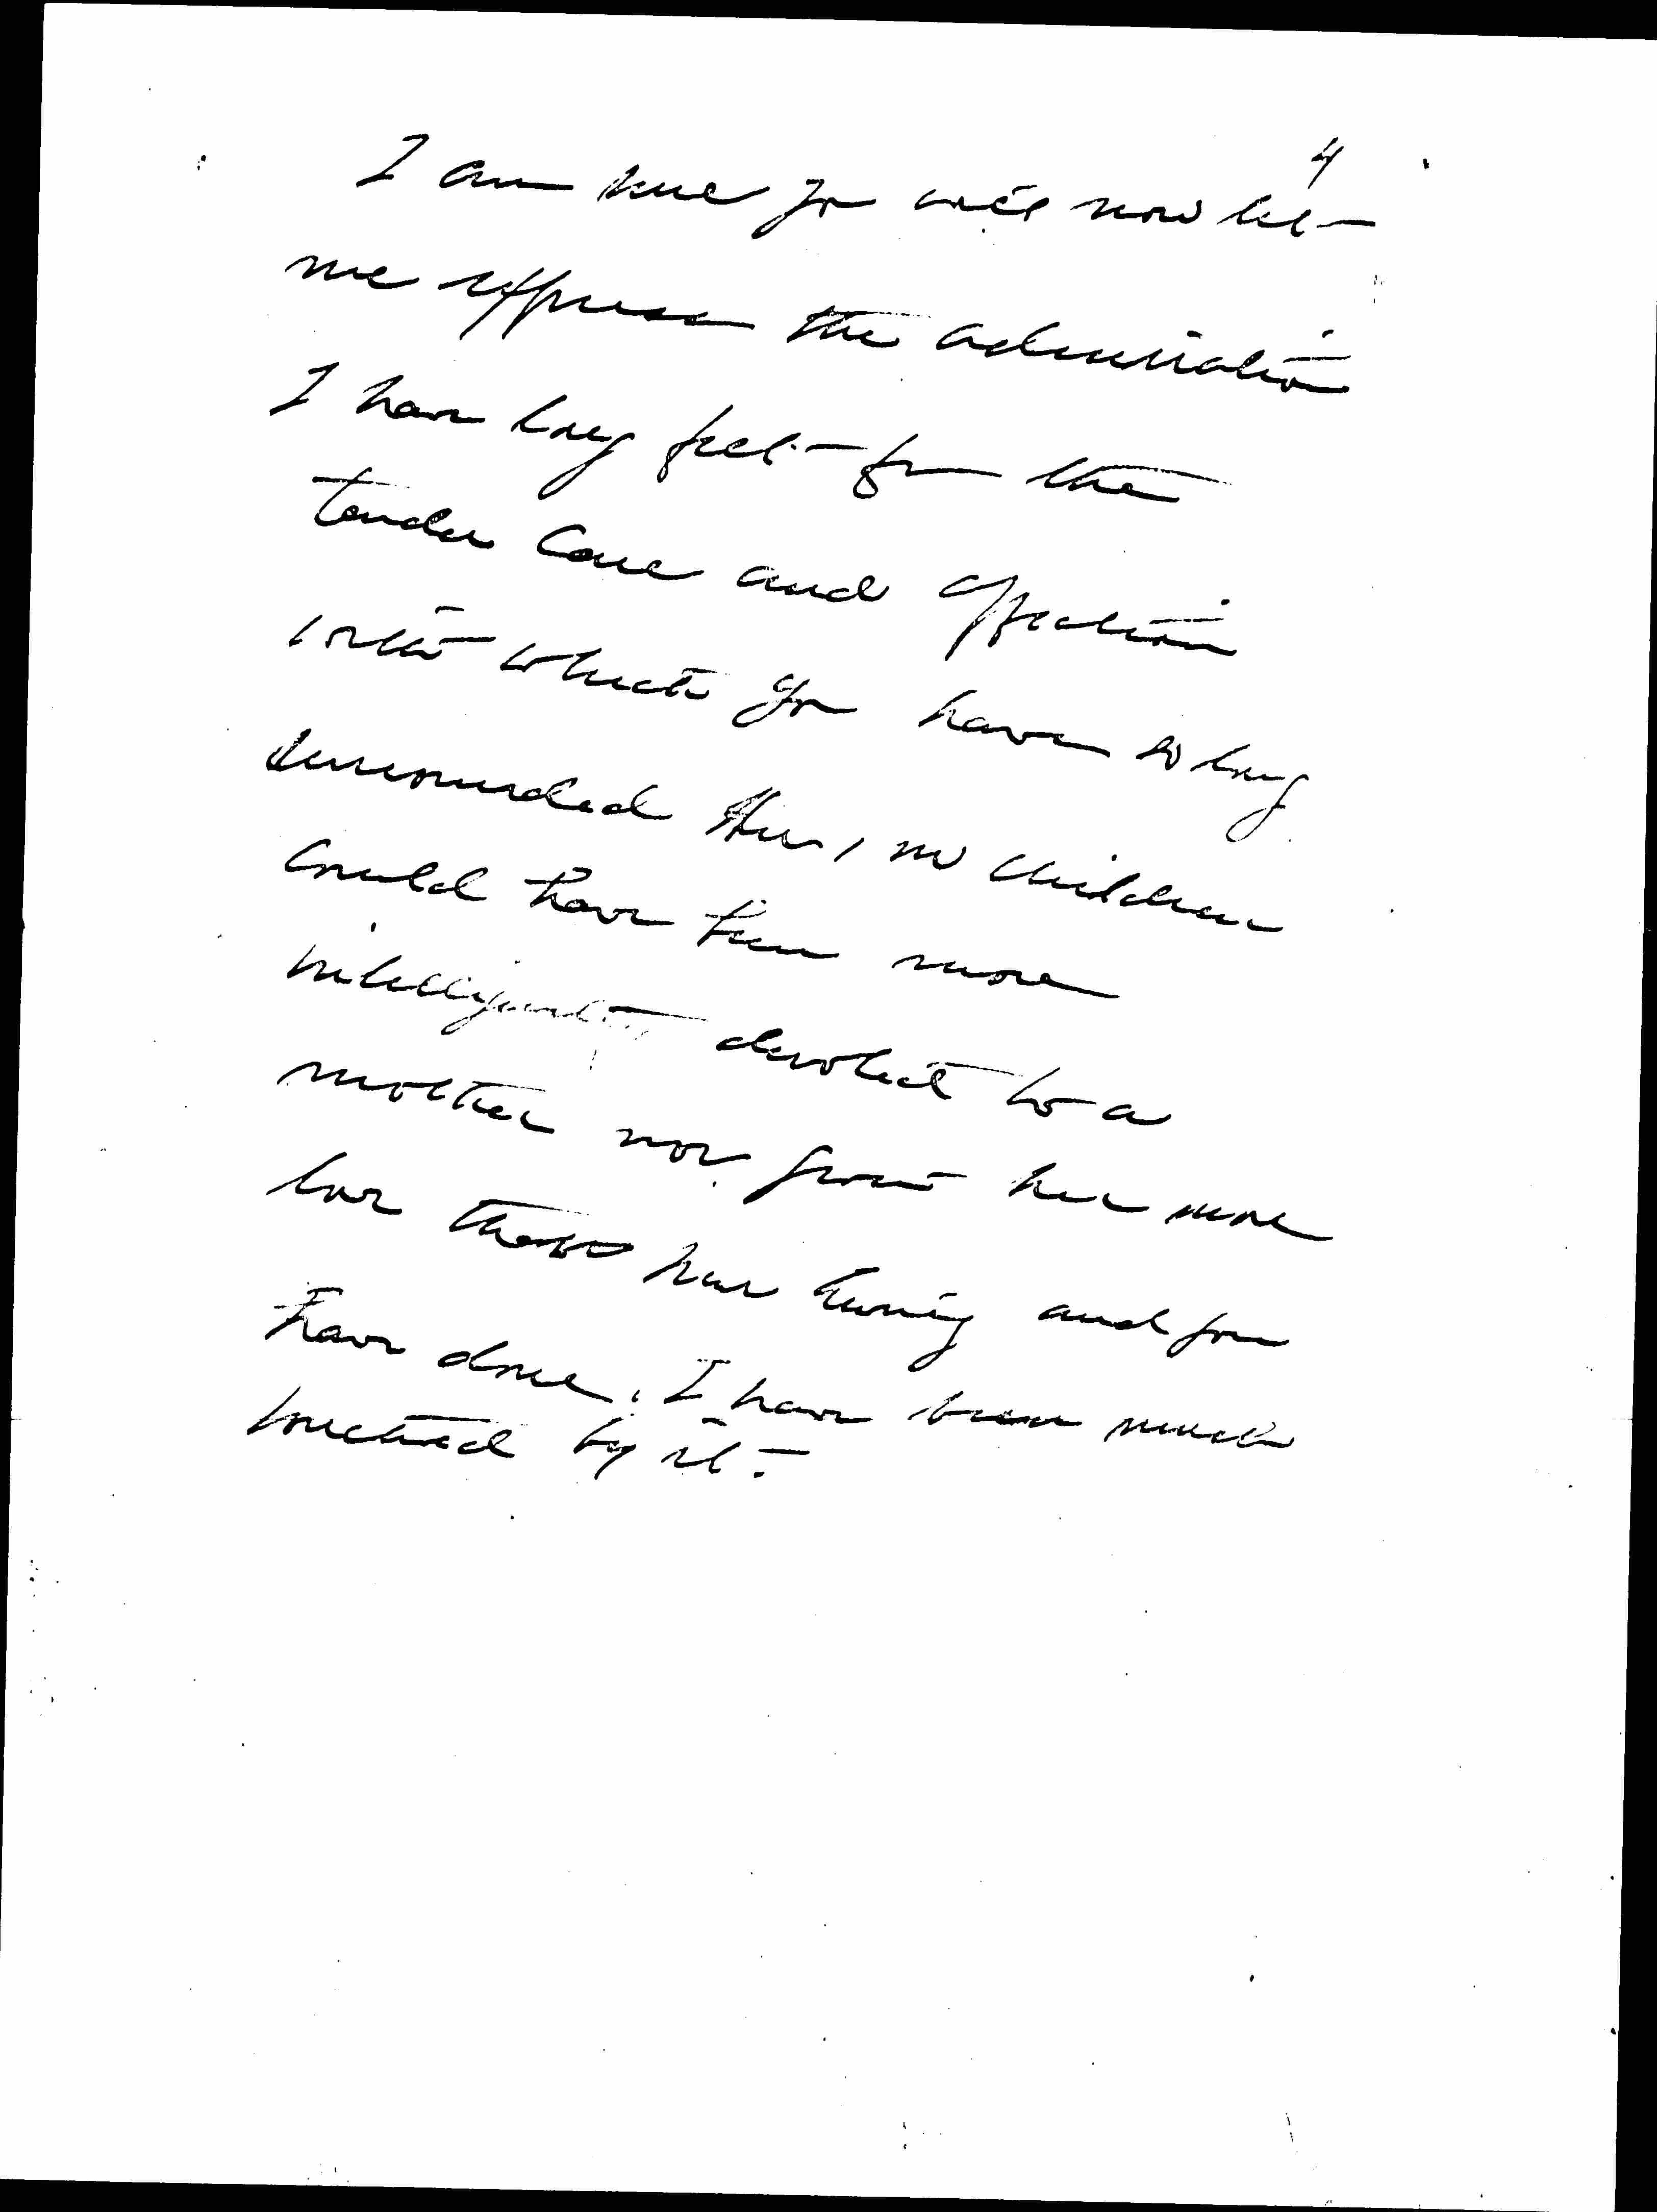 4
I am sure you will now let
me express the admiration
I have long felt for the
tender care and affection
with which you have so long
surrounded her, no children
could have been more
intelligently devoted to a
mother nor given her more
love than her having and you
have done. I have been much
touched by it.